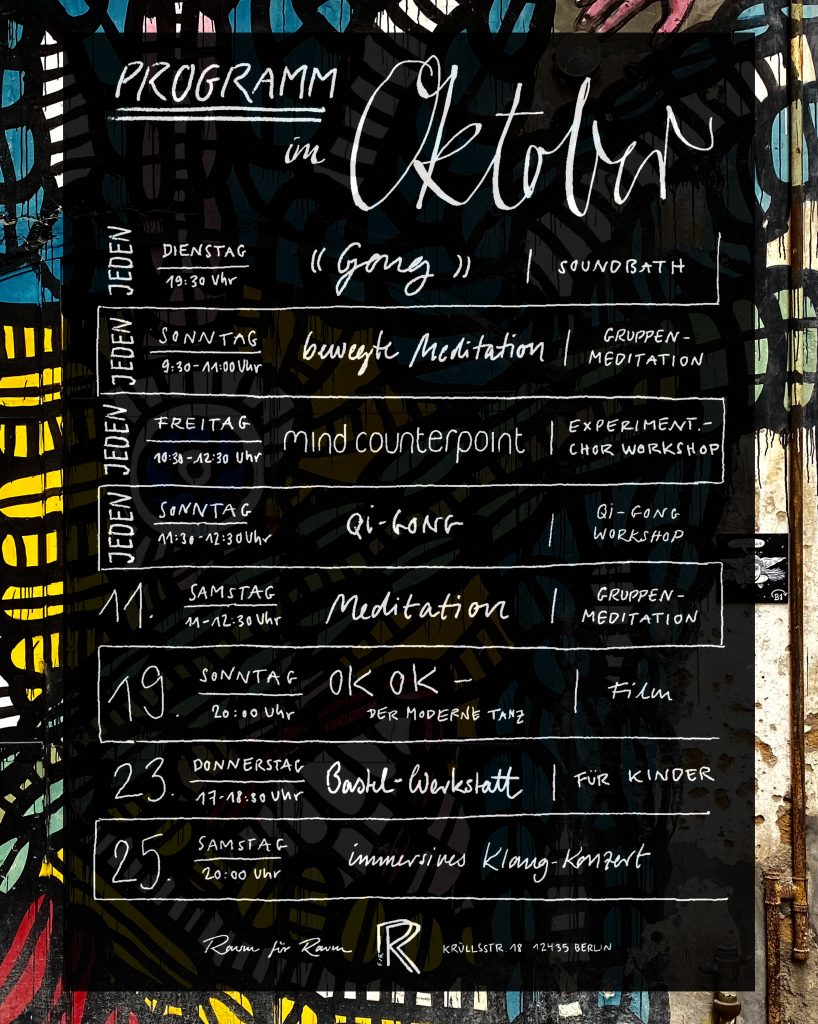 PROGRAMM
im Oktober
JEDEN DIENSTAG 19:30 Uhr « Gong » | SOUNDBATH
JEDEN SONNTAG 9:30-11:00 Uhr bewegte Meditation | GRUPPEN-
MEDITATION
JEDEN FREITAG 10:30-12:30 Uhr mind counterpoint | EXPERIMENT.-
CHOR WORKSHOP
JEDEN SONNTAG 11:30-12:30 Uhr Qi-GONG | Qi-GONG
WORKSHOP
11. SAMSTAG 11-12:30 Uhr Meditation | GRUPPEN-
MEDITATION
19. SONNTAG 20:00 Uhr OK OK - | Film
DER MODERNE TANZ
23. DONNERSTAG 17-18:30 Uhr Bastel-Werkstatt | FÜR KINDER
25. SAMSTAG 20:00 Uhr immersives Klang-Konzert
Raum für Raum R KRÜLLSSTR. 18 12435 BERLIN